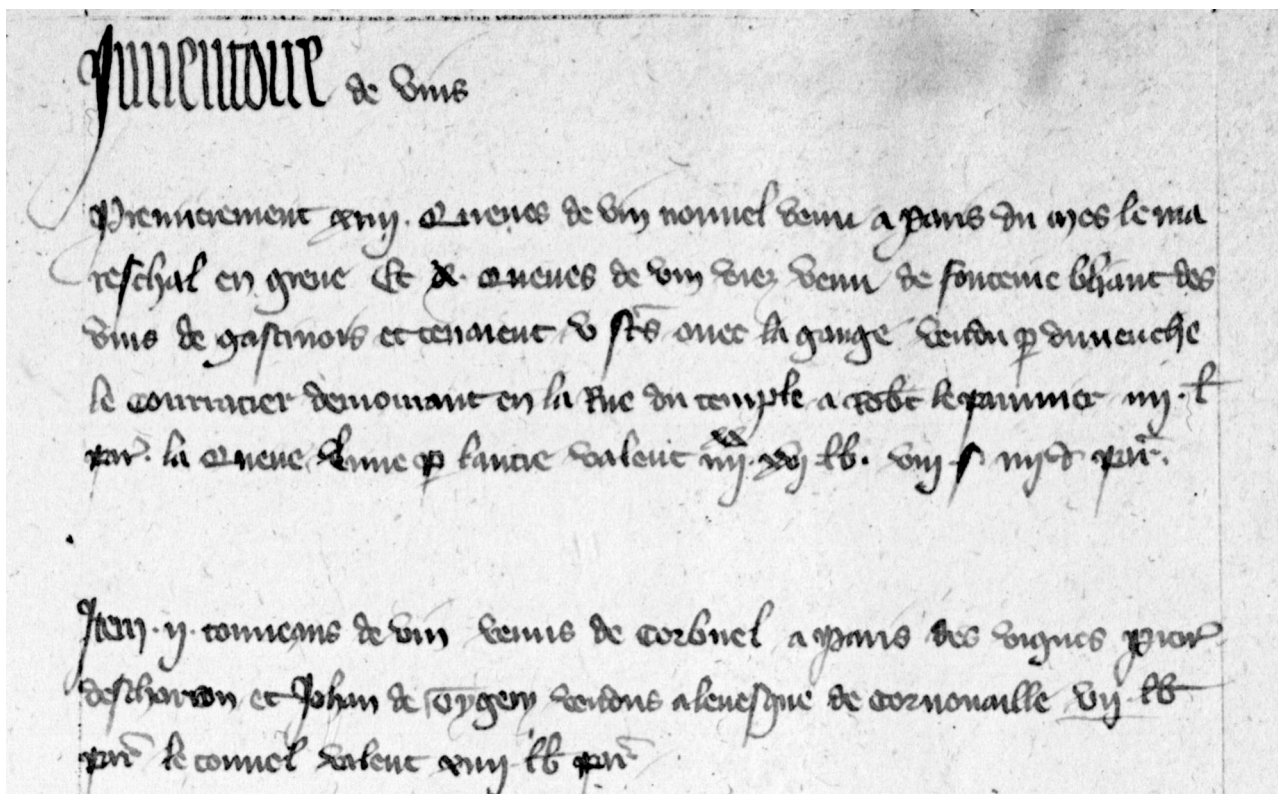 Inventoire de vins
Premierement xiiii. queues de vin nouvel venu a Paris du mes le ma
reschal en greve Et x. queues de vin viez venu de fonteine bliaut des
vins de gastinois et tenaient v st's avec la gauge vendu p dimenche
le courratier demourant en la Rue du temple a Robt le paumier iiii. l
par. la queue lune p lautre valent iiii xx xvii lb. viii s iiii d par.
Item. ii. tonneaus de vin venus de Corbuel a Paris des vignes Pierr
descharcon et Johan de Tygery vendus a levesque de Cornouaille vii lb
par le tonnel valent xiiii lb par